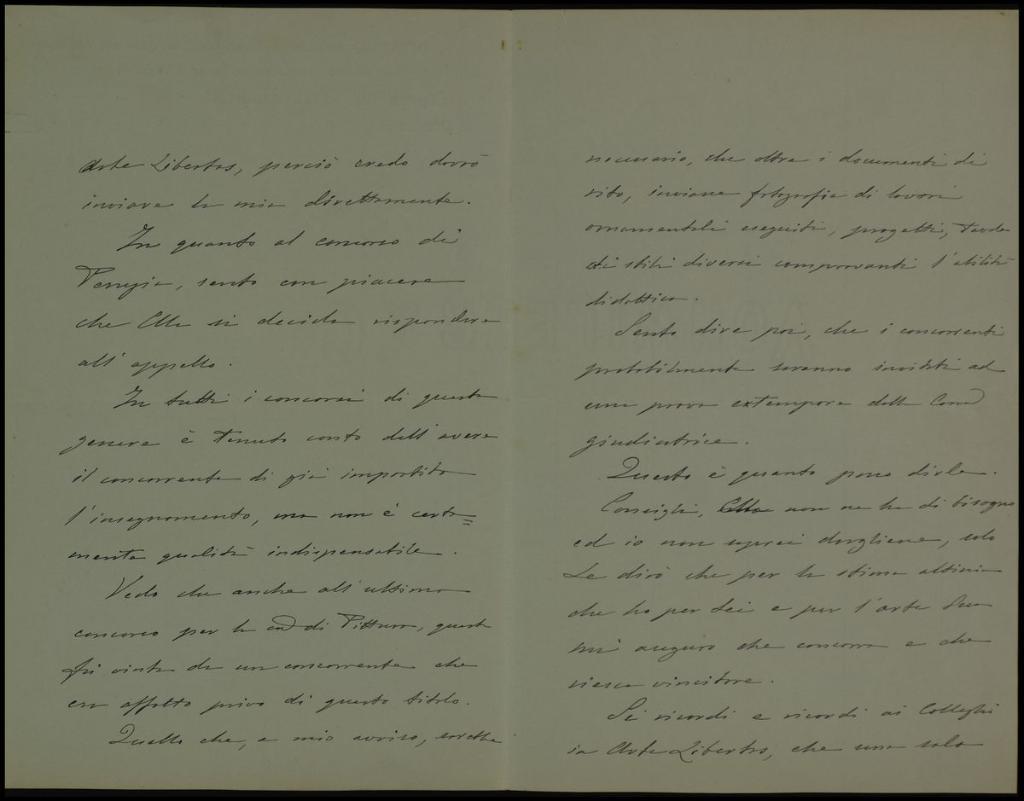 Arte Libertas, perciò credo dovrò
inviare la mia direttamente.
In quanto al concorso di
Perugia, sento con piacere
che Ella si decida rispondere
all'appello.
In tutti i concorsi di questo
genere è tenuto conto dell'avere
il concorrente di già impartito
l'insegnamento, ma non è certa=
mente qualità indispensabile.
Vedo che anche all'ultimo
concorso per la cad di Pittura, questo
fù vinto da un concorrente che
era affatto privo di questo titolo.
Quello che, a mio avviso, sarebbe
necessario, che oltre i documenti di
rito, inviare fotografie di lavori
ornamentali eseguiti, progetti, tavole
di stili diversi comprovanti l'abilità
didattica.
Sento dire poi, che i concorrenti
probabilmente saranno invitati ad
una prova extempore dalla Com
giudicatrice.
Questo è quanto posso dirle.
Consigli, Ella non ne ha di bisogno
ed io non saprei dargliene, solo
Le dirò che per la stima altissima
che ho per Lei e per l'arte Sua
mi auguro che concorra e che
riesca vincitore.
Si ricordi e ricordi ai Colleghi
in Arte Libertas, che una sola